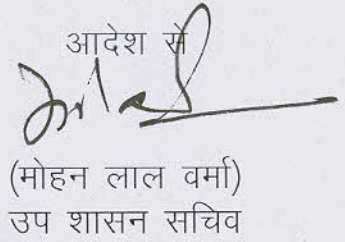 आदेश से
(मोहन लाल वर्मा)
उप शासन सचिव